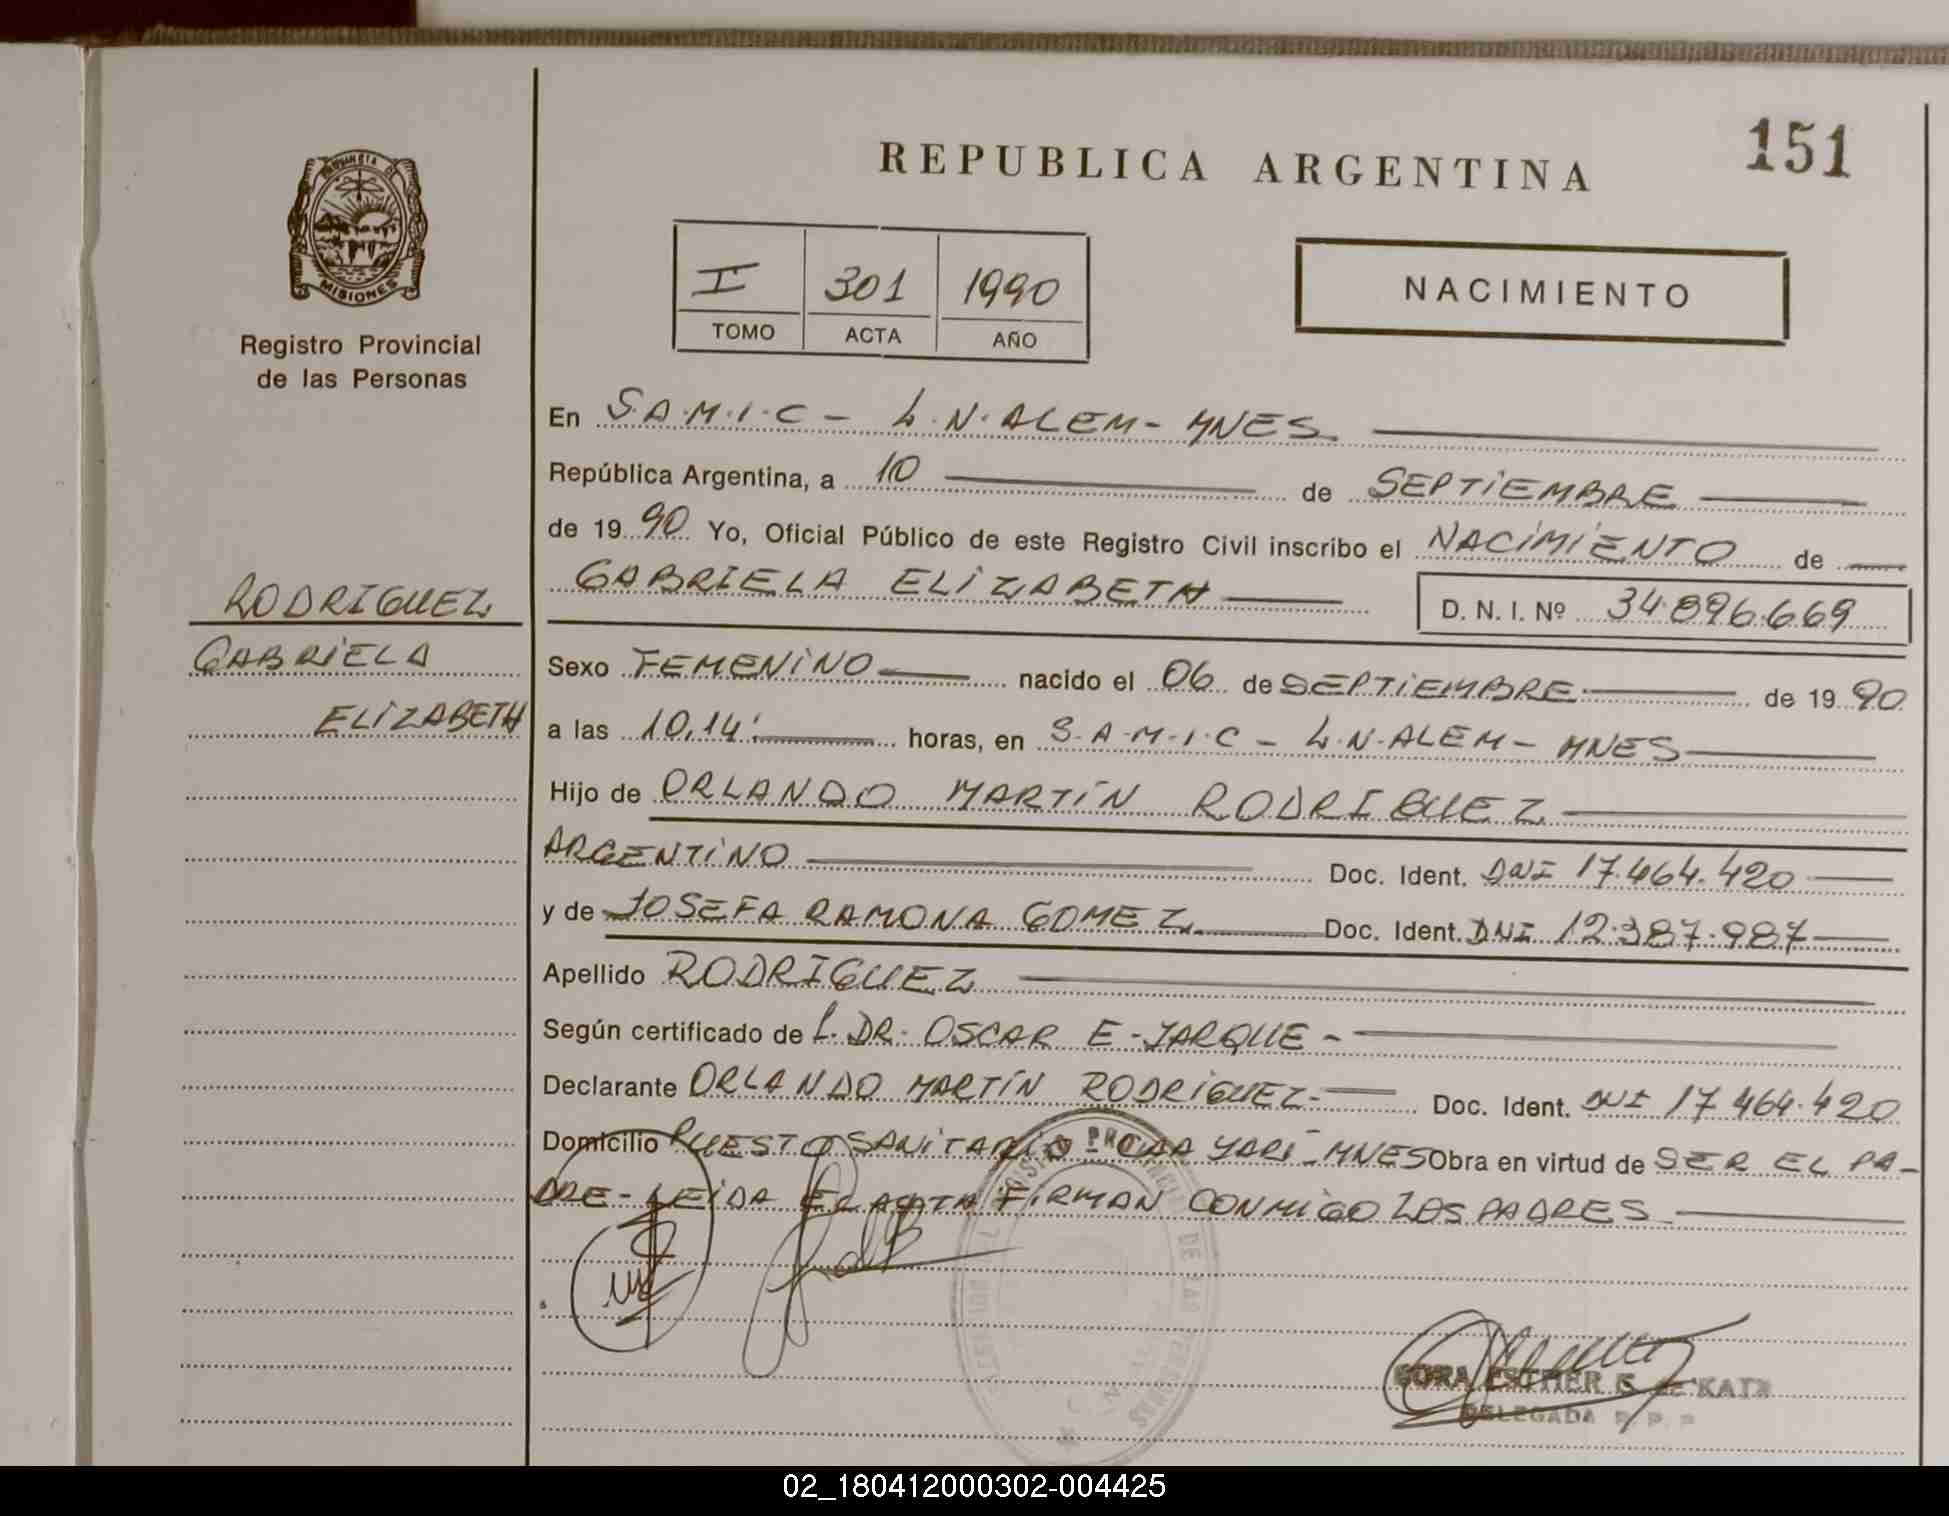 REPUBLICA ARGENTINA
151
PROVINCIA DE
MISIONES
Registro Provincial
de las Personas
I 301 1990
TOMO ACTA AÑO
NACIMIENTO
En S.A.M.I.C - L.N.ALEM - MNES
República Argentina, a 10 de SEPTIEMBRE
de 19 90 Yo, Oficial Público de este Registro Civil inscribo el NACIMIENTO de
GABRIELA ELIZABETH D. N. I. Nº 34.896.669
RODRIGUEZ
GABRIELA
ELIZABETH
Sexo FEMENINO nacido el 06 de SEPTIEMBRE de 19 90
a las 10,14' horas, en S.A.M.I.C - L.N.ALEM - MNES
Hijo de ORLANDO MARTÍN RODRIGUEZ
ARGENTINO Doc. Ident. DNI 17.464.420
y de JOSEFA RAMONA GOMEZ Doc. Ident. DNI 12.387.987
Apellido RODRIGUEZ
Según certificado de L. DR. OSCAR E. JARQUE -
Declarante ORLANDO MARTÍN RODRIGUEZ - Doc. Ident. DNI 17.464.420
Domicilio PUESTO SANITARIO - CAA YARI - MNES Obra en virtud de SER EL PA-
DRE - LEIDA EL ACTA FIRMAN CONMIGO LOS PADRES
ESTHER de KATZ
DELEGADA R. P. P
02_180412000302-004425